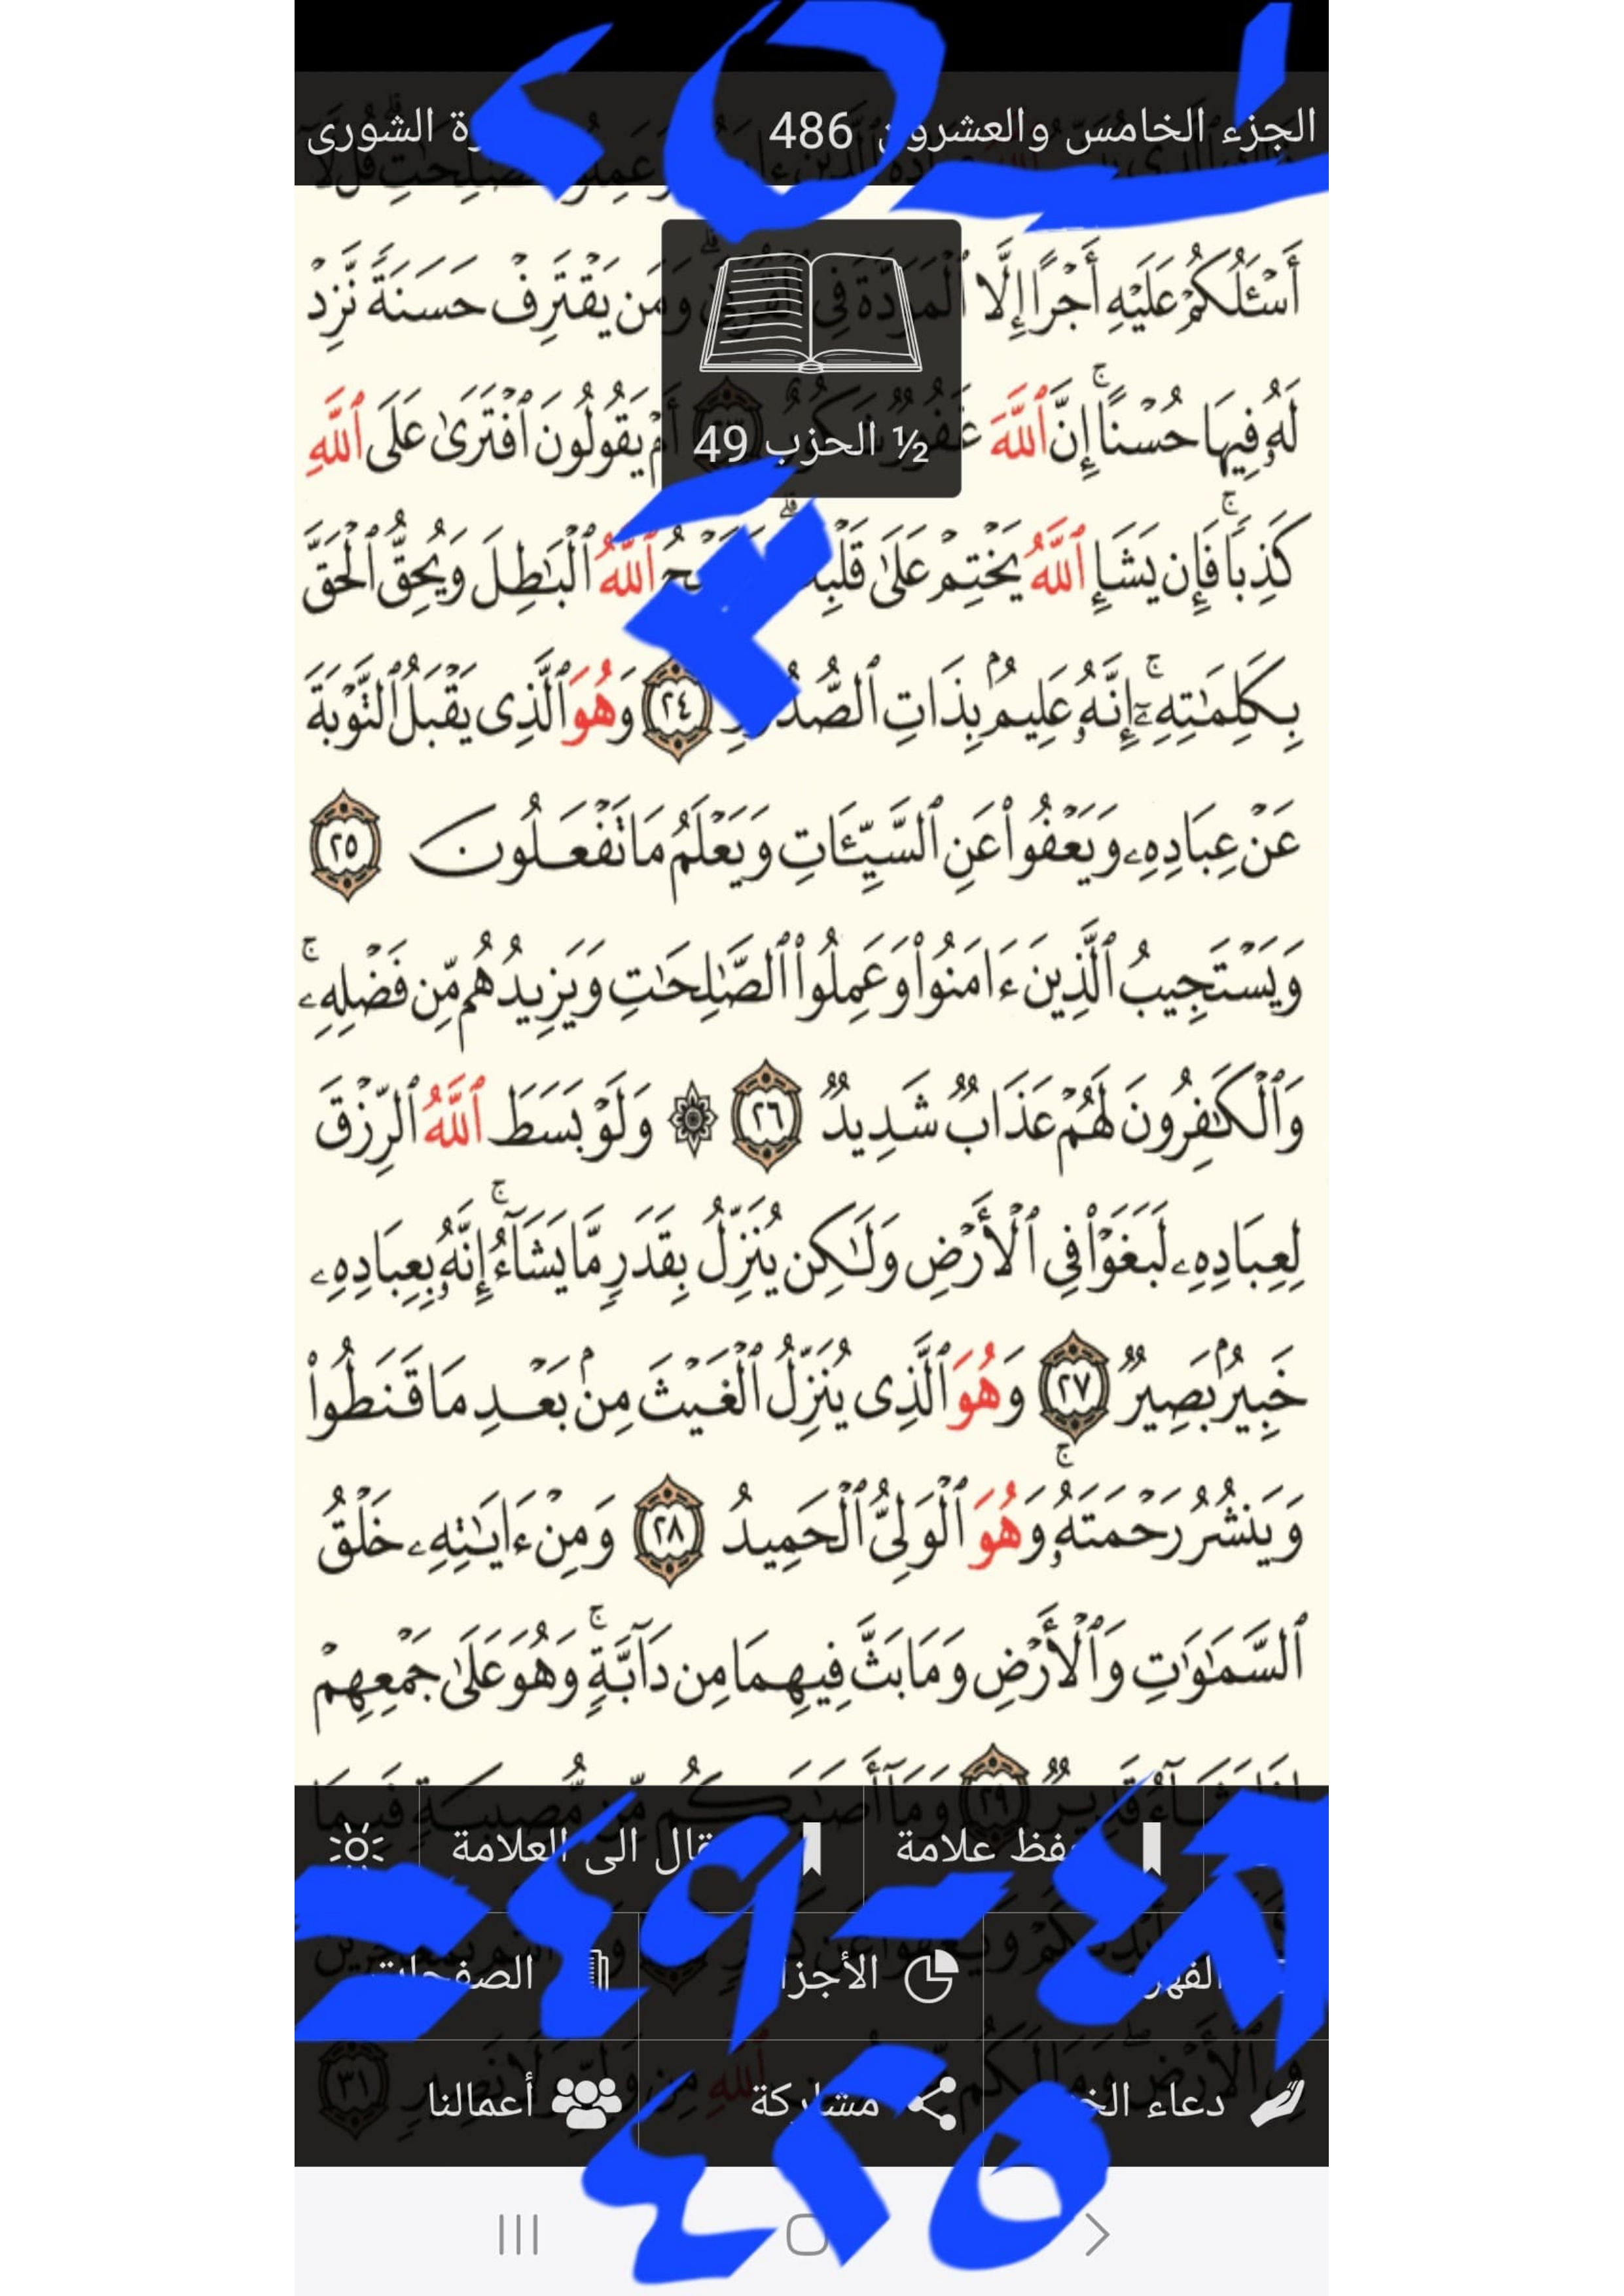 الجزء الخامس والعشرون 486
أَسْـَٔلُكُمْ عَلَيْهِ أَجْرًا إِلَّا ٱلْمَوَدَّةَ فِى ٱلْقُرْبَىٰ ۗ وَمَن يَقْتَرِفْ حَسَنَةً نَّزِدْ
لَهُۥ فِيهَا حُسْنًا ۚ إِنَّ ٱللَّهَ غَفُورٌ شَكُورٌ أَمْ يَقُولُونَ ٱفْتَرَىٰ عَلَى ٱللَّهِ
½ الحزب 49
كَذِبًا ۖ فَإِن يَشَإِ ٱللَّهُ يَخْتِمْ عَلَىٰ قَلْبِكَ ٱللَّهُ ٱلْبَٰطِلَ وَيُحِقُّ ٱلْحَقَّ
بِكَلِمَٰتِهِۦٓ ۚ إِنَّهُۥ عَلِيمٌۢ بِذَاتِ ٱلصُّدُورِ ٢٤ وَهُوَ ٱلَّذِى يَقْبَلُ ٱلتَّوْبَةَ
عَنْ عِبَادِهِۦ وَيَعْفُوا۟ عَنِ ٱلسَّيِّـَٔاتِ وَيَعْلَمُ مَا تَفْعَلُونَ ٢٥
وَيَسْتَجِيبُ ٱلَّذِينَ ءَامَنُوا۟ وَعَمِلُوا۟ ٱلصَّٰلِحَٰتِ وَيَزِيدُهُم مِّن فَضْلِهِۦ ۚ
وَٱلْكَٰفِرُونَ لَهُمْ عَذَابٌ شَدِيدٌ ٢٦ ۞ وَلَوْ بَسَطَ ٱللَّهُ ٱلرِّزْقَ
لِعِبَادِهِۦ لَبَغَوْا۟ فِى ٱلْأَرْضِ وَلَٰكِن يُنَزِّلُ بِقَدَرٍ مَّا يَشَآءُ ۚ إِنَّهُۥ بِعِبَادِهِۦ
خَبِيرٌۢ بَصِيرٌ ٢٧ وَهُوَ ٱلَّذِى يُنَزِّلُ ٱلْغَيْثَ مِنۢ بَعْدِ مَا قَنَطُوا۟
وَيَنشُرُ رَحْمَتَهُۥ ۚ وَهُوَ ٱلْوَلِىُّ ٱلْحَمِيدُ ٢٨ وَمِنْ ءَايَٰتِهِۦ خَلْقُ
ٱلسَّمَٰوَٰتِ وَٱلْأَرْضِ وَمَا بَثَّ فِيهِمَا مِن دَآبَّةٍ ۚ وَهُوَ عَلَىٰ جَمْعِهِمْ
علامة الى العلامة
الأجزاء الصفحات
دعاء مشاركة أعمالنا